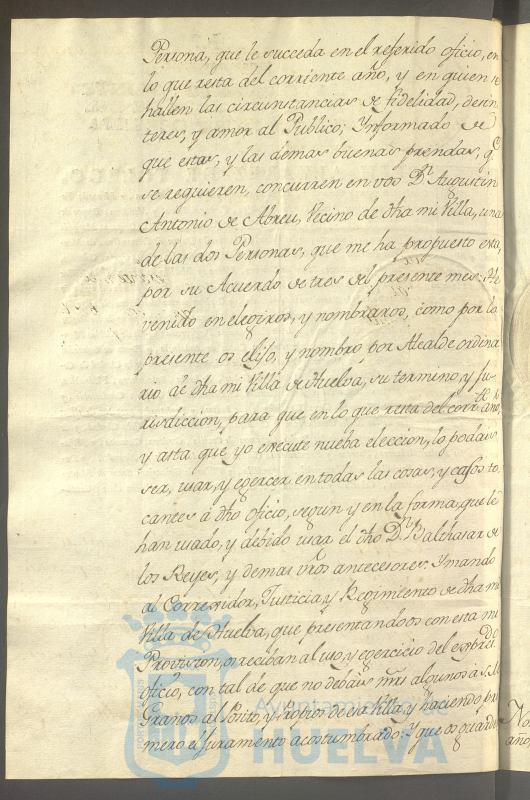 Persona, que le succeda en el referido oficio, en
lo que resta del corriente año, y en quien se
hallen las circunstancias de fidelidad, desin
teres, y amor al Publico; Ynformado de
que estas, y las demas buenas prendas, q.^e
se requieren, concurren en vos D.^n Augustin
Antonio de Abreu, Vecino de dha mi Villa, una
de las dos Personas, que me ha propuesto esta,
por su Acuerdo de tres del presente mes: He
venido en elegiros, y nombraros, como por la
presente os elijo, y nombro por Alcalde ordina
rio de dha mi Villa de Huelva, su termino, y Ju-
risdiccion, para que en lo que resta del corr.^te año,
y asta que yo execute nueba eleccion, lo podais
ser, usar, y egercer en todas las cosas, y casos to.
cantes á dho oficio, segun y en la forma, que le
han usado, y debido usar el dho D.^n Balthasar de
los Reyes, y demas vros antecesores. Y mando
al Corregidor, Justicia, y Regimiento de dha mi
Villa de Huelva, que presentandoos con esta mi
Provision, os reciban al uso, y egercicio del expres.^do
oficio, con tal de que no debais mrs algunos á S.M.
Granos al Posito, y Propios de esa Villa, y haciendo pri
mero el juramento acostumbrado: Y que os guarden
No
año,
Ayuntamiento de
HUELVA